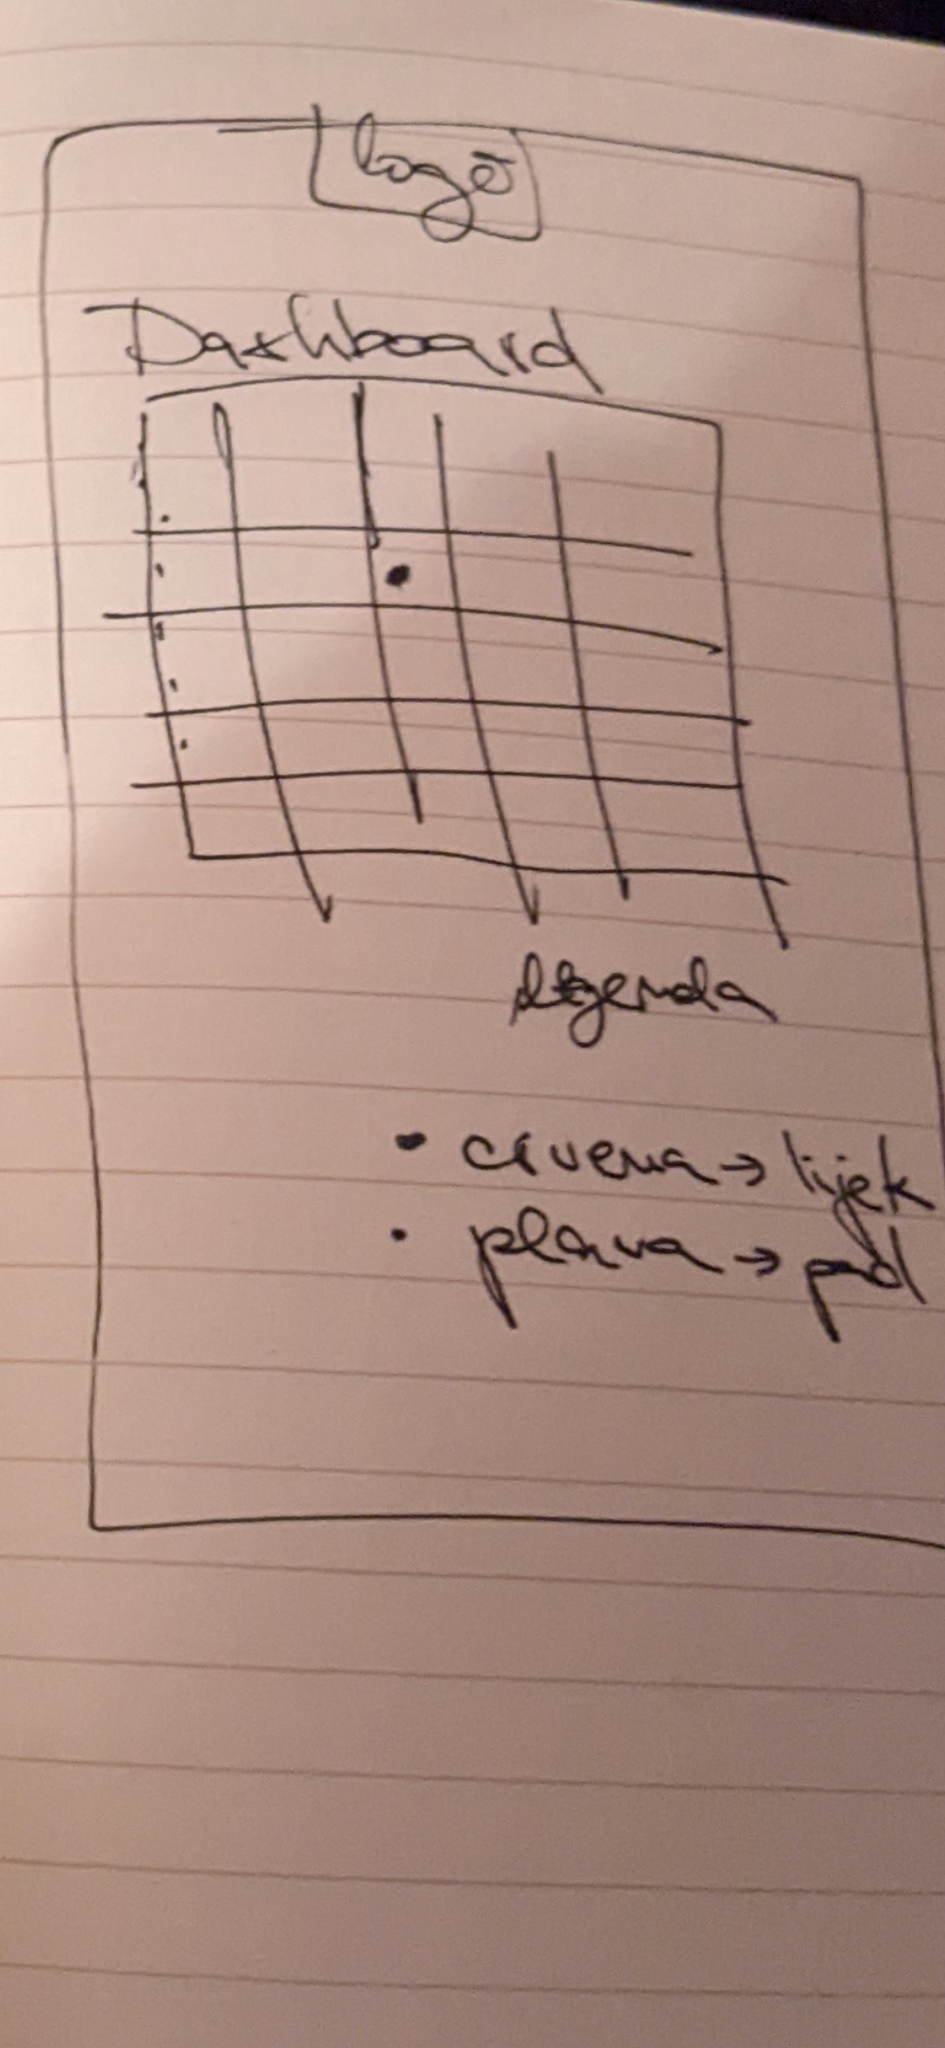 logo
Dashboard
legenda
• crvena → lijek
• plava → pad